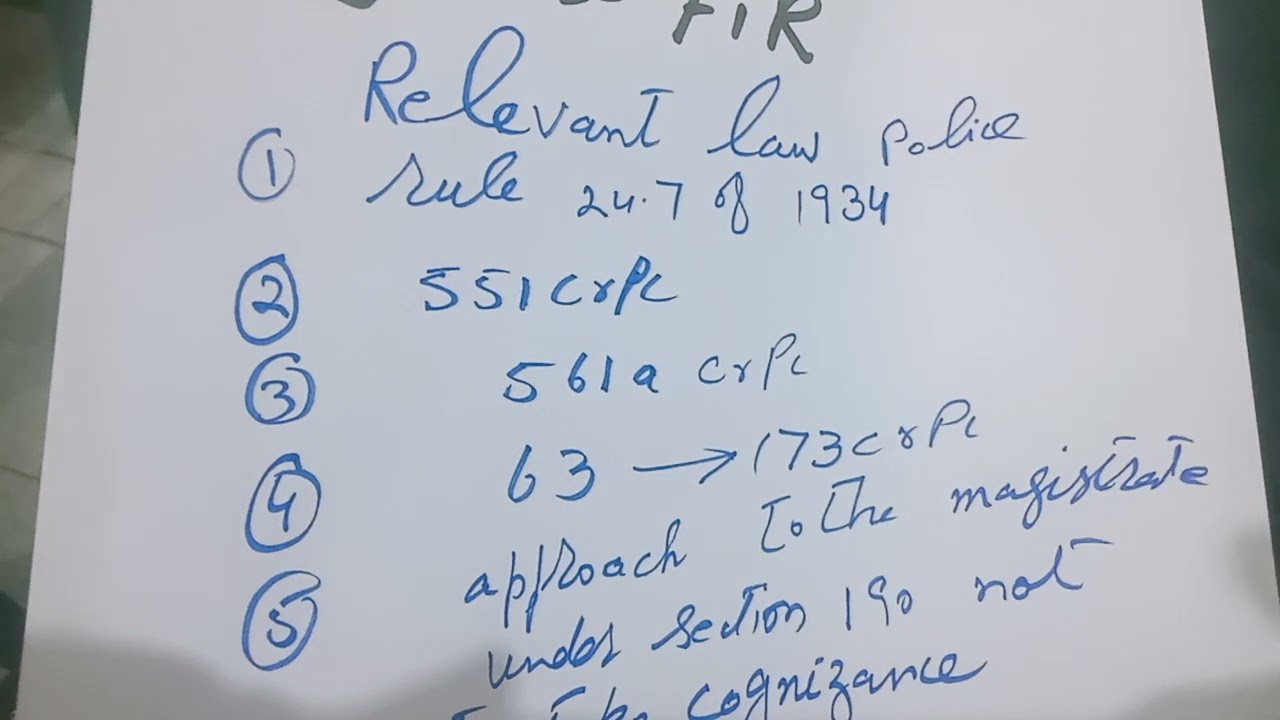 FIR
Relevant law police
① rule 24.7 of 1934
② 551 CrPc
③ 561a CrPc
④ 63 → 173 CrPc
⑤ approach to the magistrate
under section 190 not
cognizance